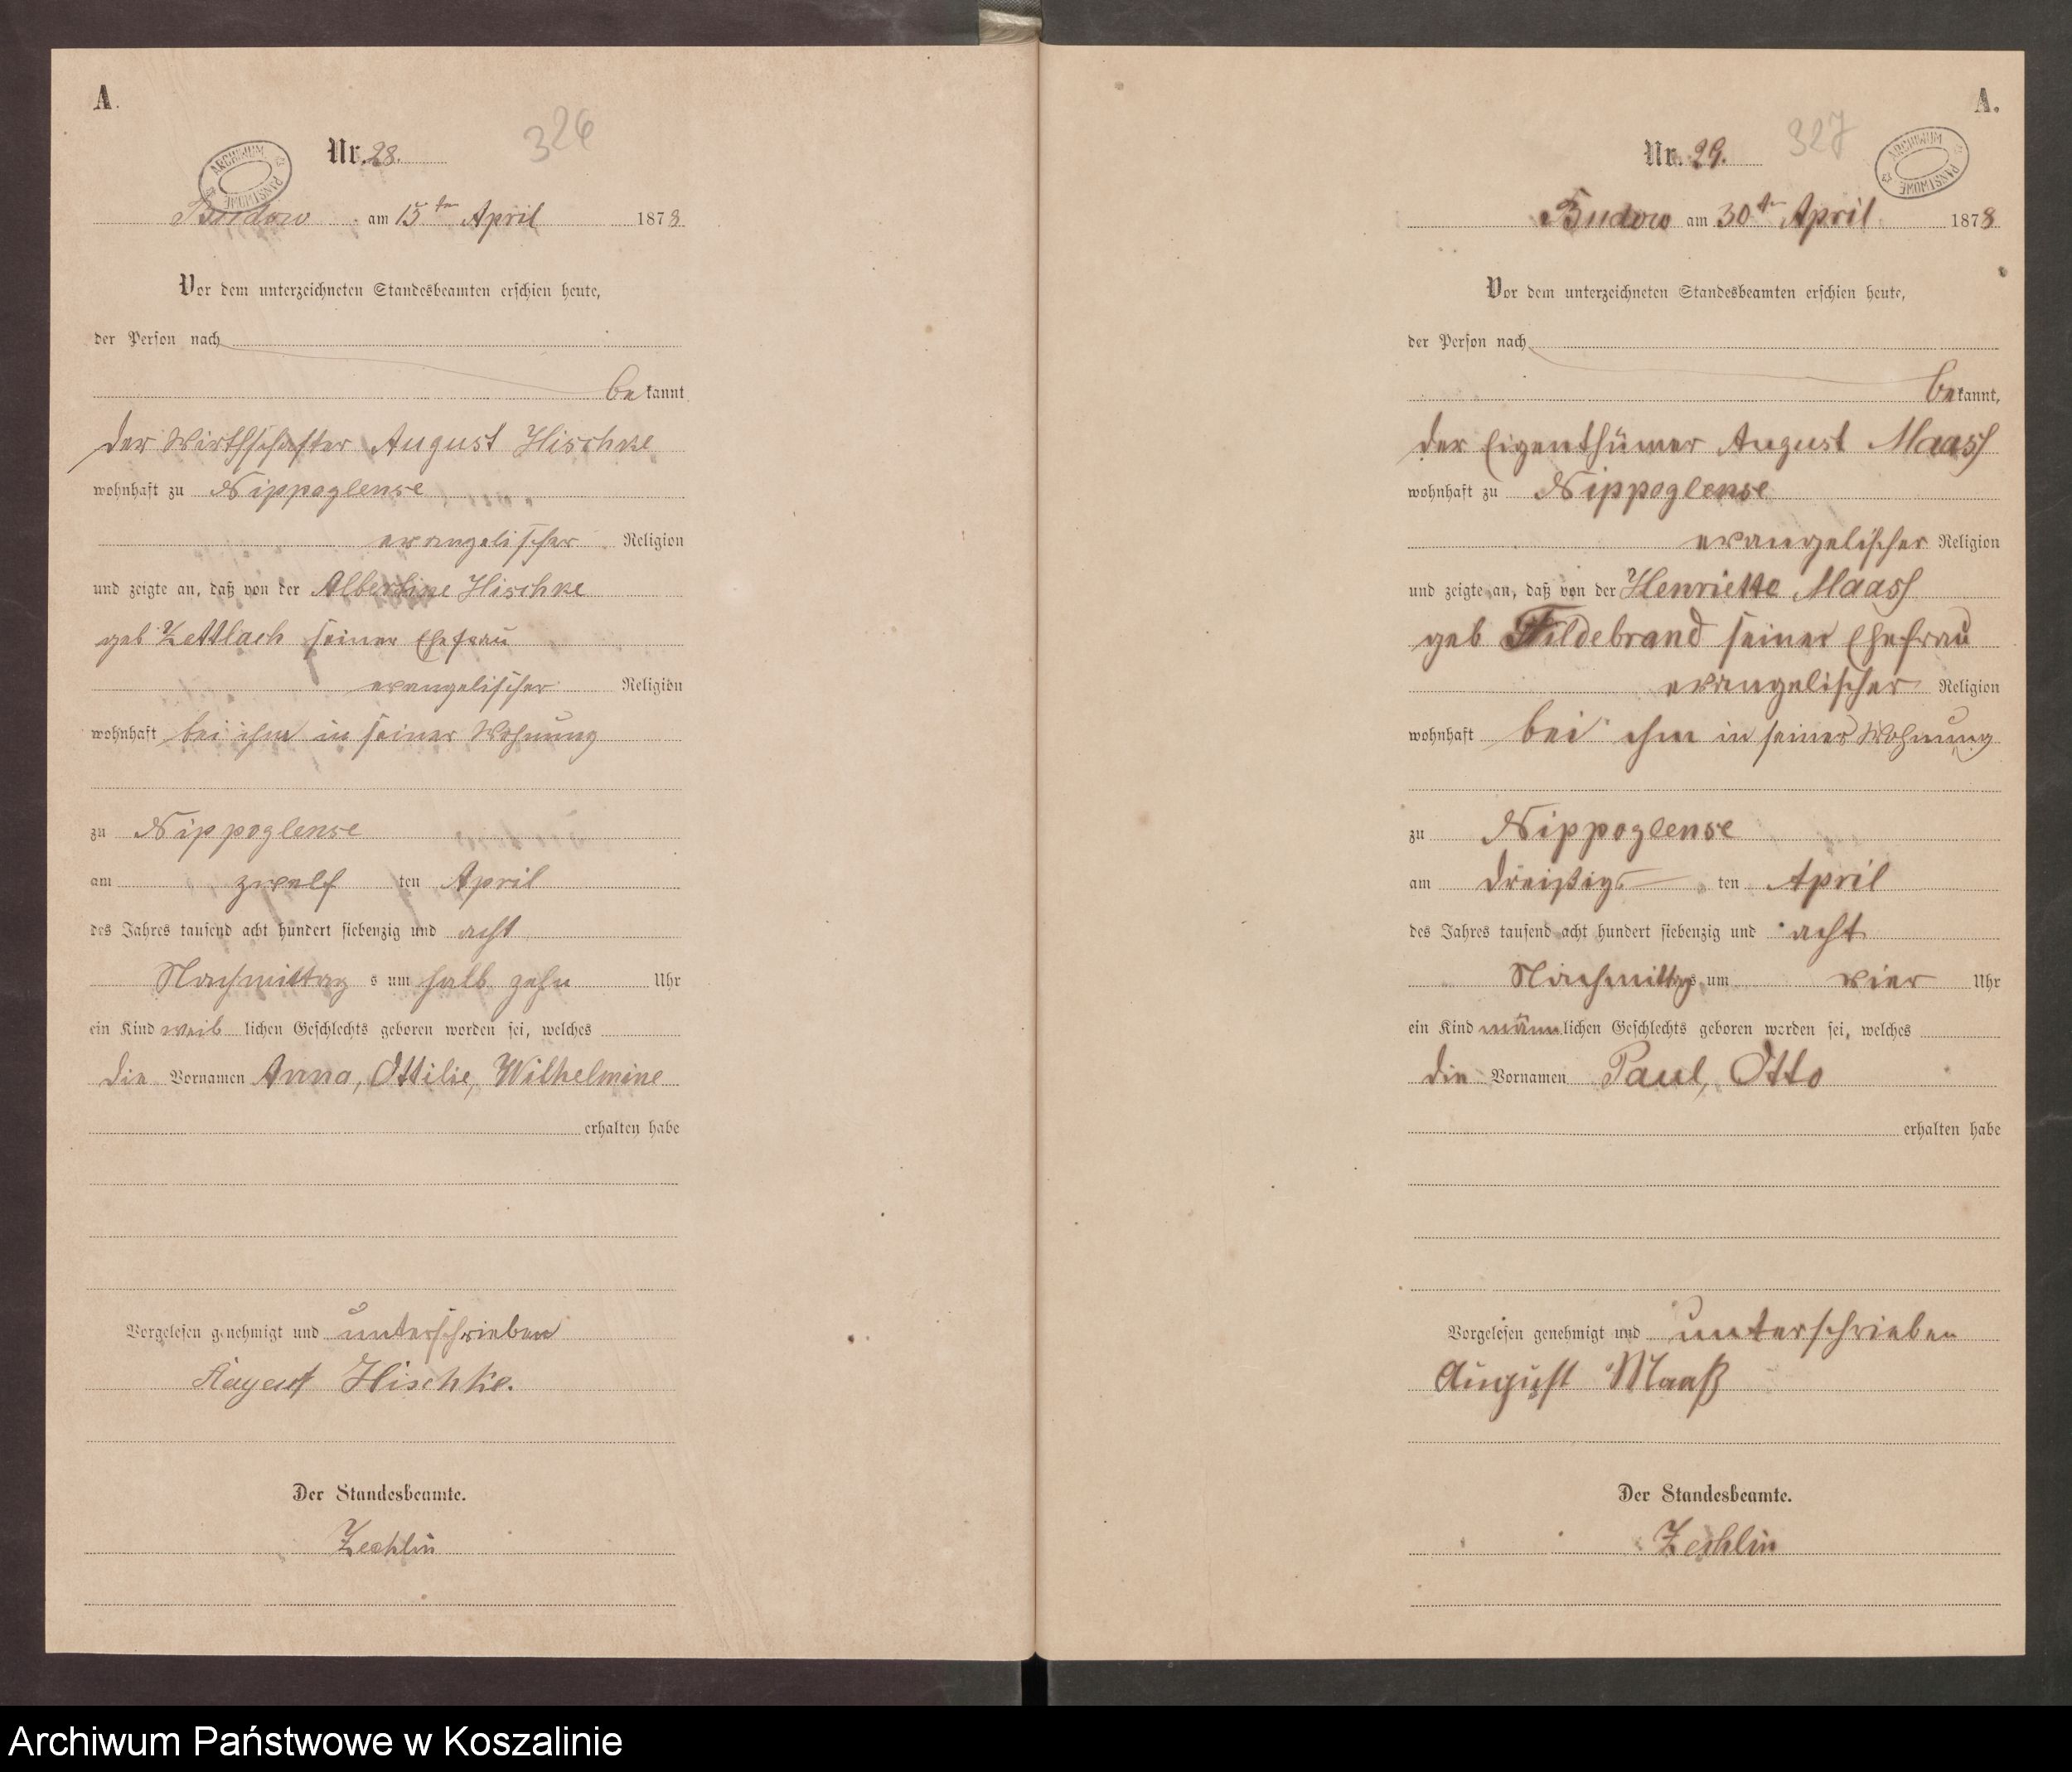 A.
Nr. 28.
326
ARCHIWUM PAŃSTWOWE
Budow am 15ten April 1878
Vor dem unterzeichneten Standesbeamten erschien heute,
der Person nach
bekannt
der Wirthschafter August Hischke
wohnhaft zu Nippoglense
evangelischer Religion
und zeigte an, daß von der Albertine Hischke
geb Zettlach seiner Ehefrau
evangelischer Religion
wohnhaft bei ihm in seiner Wohnung
zu Nippoglense
am zwölf ten April
des Jahres tausend acht hundert siebenzig und acht
Nachmittag s um halb zehn Uhr
ein Kind weib lichen Geschlechts geboren worden sei, welches
die Vornamen Anna, Ottilie, Wilhelmine
erhalten habe
Vorgelesen genehmigt und unterschrieben
August Hischke.
Der Standesbeamte.
Zechlin
A.
Nr. 29.
327
ARCHIWUM PAŃSTWOWE
Budow am 30ten April 1878
Vor dem unterzeichneten Standesbeamten erschien heute,
der Person nach
bekannt,
der Eigenthümer August Maass
wohnhaft zu Nippoglense
evangelischer Religion
und zeigte an, daß von der Henriette Maass
geb Hildebrand seiner Ehefrau
evangelischer Religion
wohnhaft bei ihm in seiner Wohnung
zu Nippoglense
am dreißigs ten April
des Jahres tausend acht hundert siebenzig und acht
Nachmittags um vier Uhr
ein Kind männlichen Geschlechts geboren worden sei, welches
die Vornamen Paul, Otto
erhalten habe
Vorgelesen genehmigt und unterschrieben
August Maaß
Der Standesbeamte.
Zechlin
Archiwum Państwowe w Koszalinie